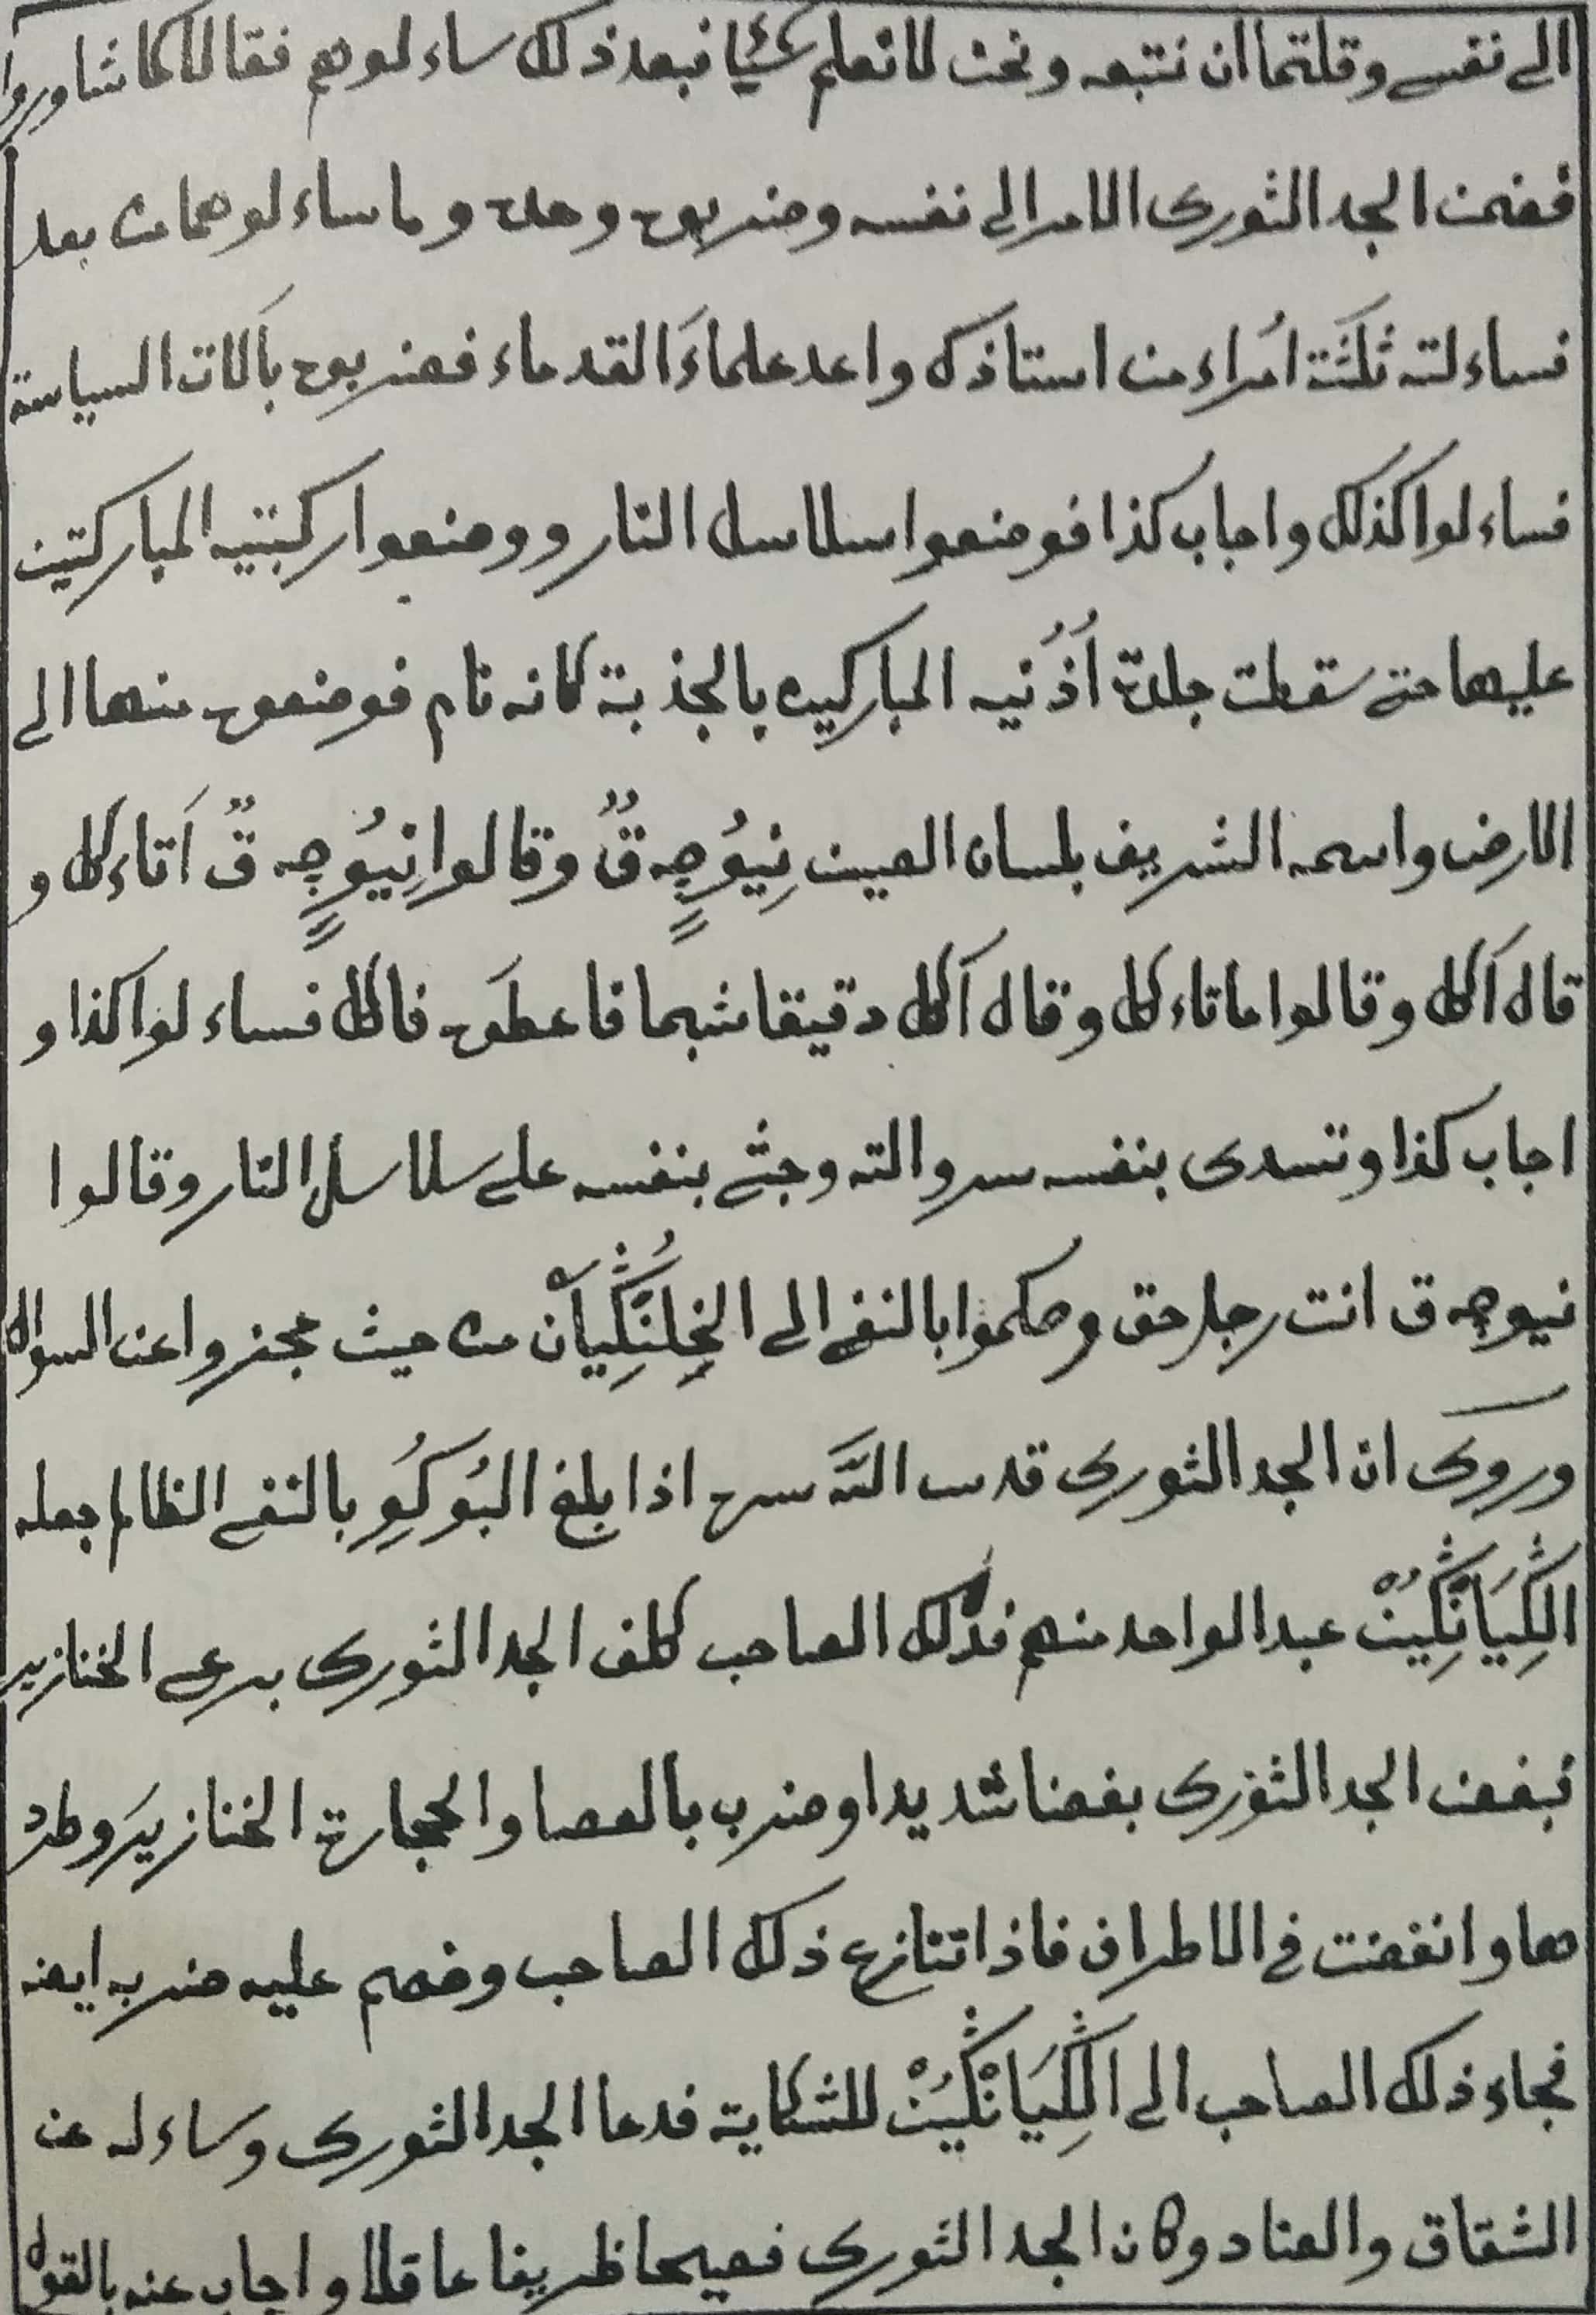 الى نفسى وقلتما ان نتبعه ونحن لا نعلم شيئا فبعد ذلك ساءلوهم فقالا كما شاوروا
فضمن الجد الثورى الامر الى نفسه وضربوه وحده وما ساءلوهما من بعد
فساءلته ثَلَثَة اُمَراء من استاذك واعد علماءَ القدماء فضربوه بآلات السياسة
فساءلوا كذلك واجاب كذا فوضعوا سلاسل النار ووضعوا ركبتيه المباركتين
عليها حتى سقطت جلدة اُذُنيه المباركين بالجذبة كانه نام فوضعوه منها الى
الارض واسمه الشريف بلسان الصين نِيُوجِهٍ قٌ وقالوا نِيُوجِهٍ قٌ اَتاءكل و
قال آكل وقالوا ما تاءكل وقال آكل دقيقا شبحا فاعطَوه فاكل فساءلوا كذا و
اجاب كذا وتسدى بنفسه سروالته وجثى بنفسه على سلاسل النار وقالوا
نيوجه ق انت رجل حق وحكموا بالنفى الى الخِلُنْكِيَانْ من حيث عجزوا عن السوال
وروى ان الجد الثورى قدس اللّه سره اذا بلغ البُوكُوِ بالنفى الظالم جعله
الكِيَانْكِيُنْ عبدا لواحد منهم فذلك الصاحب كلف الجد الثورى برعى الخنازير
فبغض الجد الثورى بغضا شديدا وضرب بالعصا والحجارة الخنازيرَ وطرد
ها وانفضت فى الاطراف فاذا تنازع ذلك الصاحب وخصم عليه ضربه ايضه
فجاء ذلك الصاحب الى الكِيَانْكِيُنْ للشكاية فدعا الجد الثورى وساءله عن
الشقاق والعناد وكان الجد الثورى فصيحا ظريفا عاقلا واجاب عنه بالقول